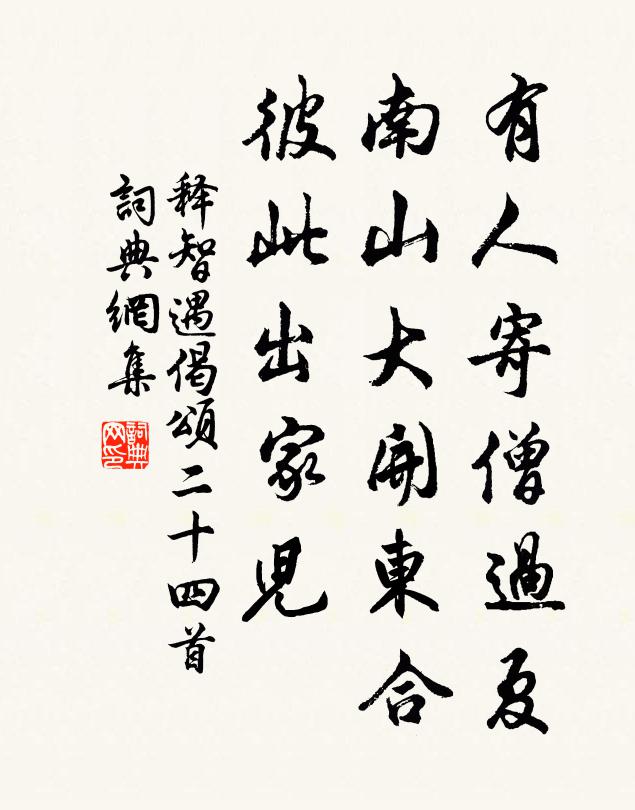 有人寄僧過夏
南山大開東合
彼此出家児
释智遇偈頌二十四首
詞典網集
詞典网印